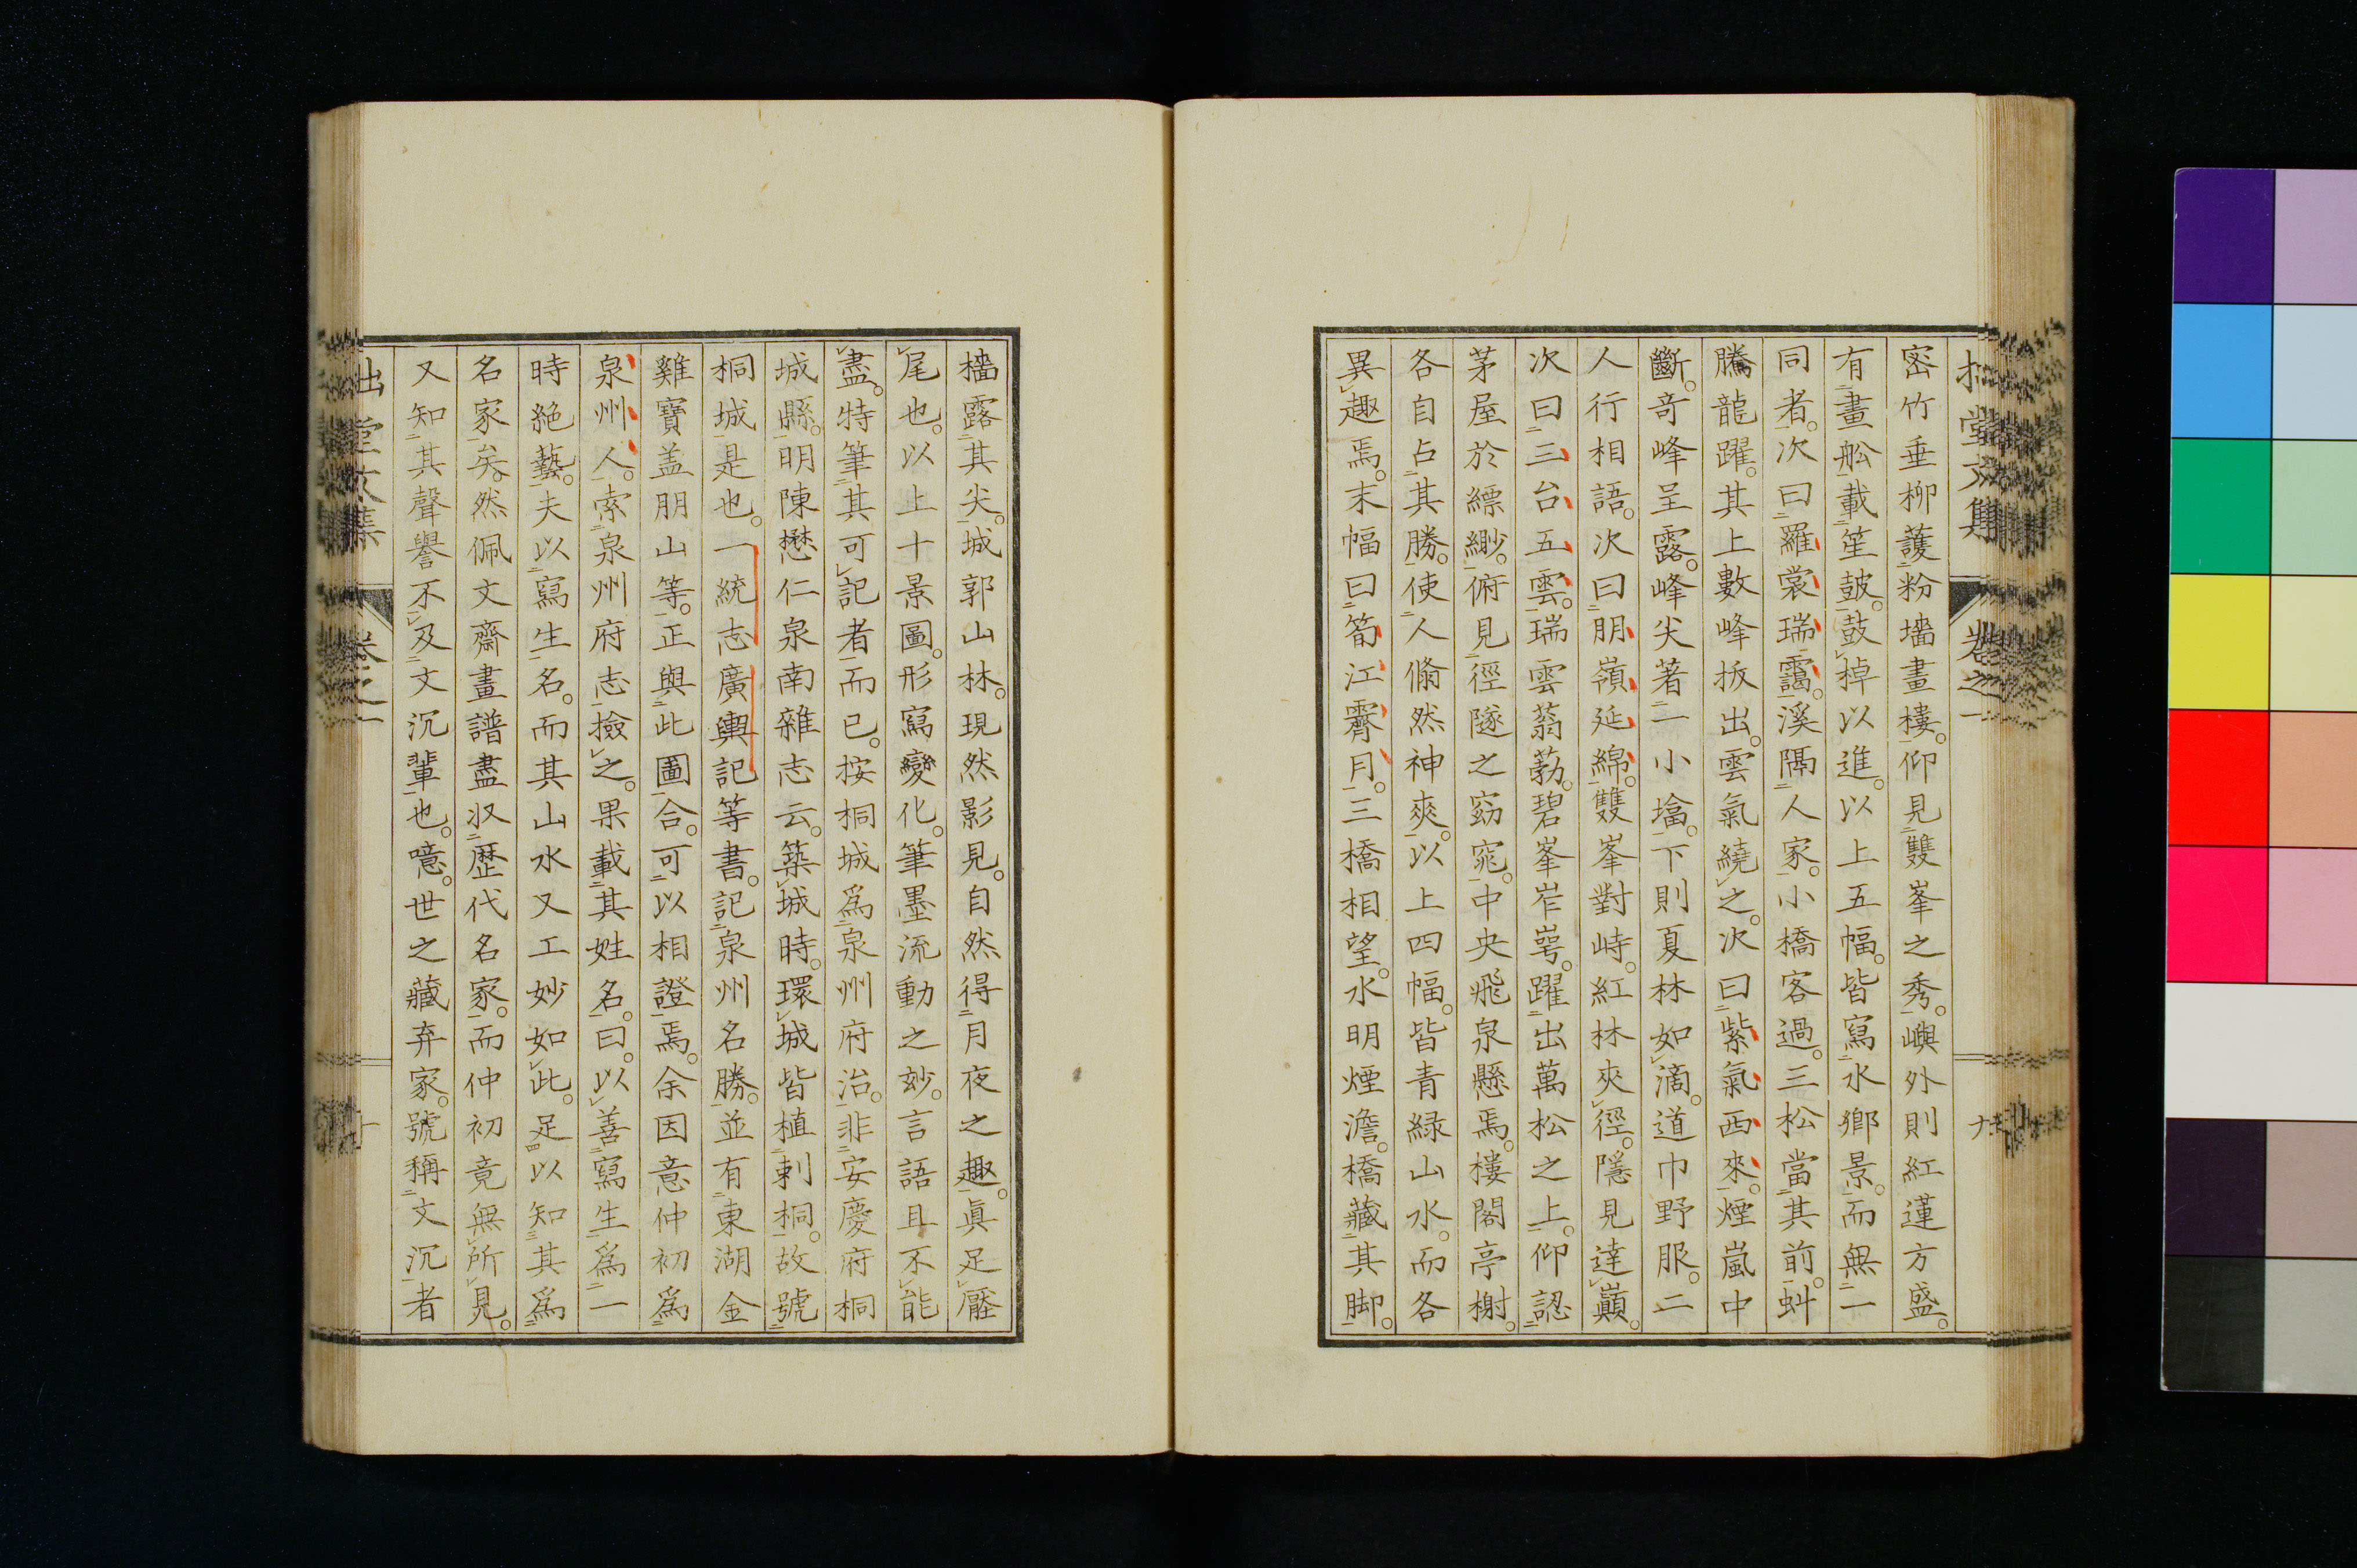 密竹垂柳護粉墻畫樓。仰見雙峯之秀。嶼外則紅蓮方盛。
有畫舩載笙皷。鼓棹以進。以上五幅。皆寫水鄉景。而無一
同者。次曰羅裳瑞靄。溪隅人家。小橋客過。三松當其前。蚪
騰龍躍。其上數峰拔出。雲氣繞之。次曰紫氣西來。煙嵐中
斷。奇峰呈露。峰尖著一小墖。下則夏林如滴。道巾野服。二
人行相語。次曰朋嶺延綿。雙峯對峙。紅林夾徑。隱見達巔。
次曰三台五雲。瑞雲蓊葧。碧峯岝崿。躍出萬松之上。仰認
茅屋於縹緲。俯見徑隧之窈窕。中央飛泉懸焉。樓閣亭榭。
各自占其勝。使人翛然神爽。以上四幅。皆青緑山水。而各
異趣焉。末幅曰筍江霽月。三橋相望。水明煙澹。橋藏其脚。
檣露其尖。城郭山林。現然影見。自然得月夜之趣。眞足壓
尾也。以上十景圖。形寫變化。筆墨流動之玅。言語且不能
盡。特筆其可記者而已。按桐城爲泉州府治。非安慶府桐
城縣。明陳懋仁泉南雜志云。築城時。環城皆植刺桐。故號
桐城是也。一統志廣輿記等書。記泉州名勝。並有東湖金
雞寶盖朋山等。正與此圖合。可以相證焉。余因意仲初爲
泉州人。索泉州府志撿之。果載其姓名。曰。以善寫生爲一
時絶藝。夫以寫生名。而其山水又工妙如此。足以知其爲
名家矣。然佩文齋畫譜盡収歴代名家。而仲初竟無所見。
又知其聲譽不及文沉輩也。噫。世之藏弆家。號稱文沉者
堂文集 卷之一